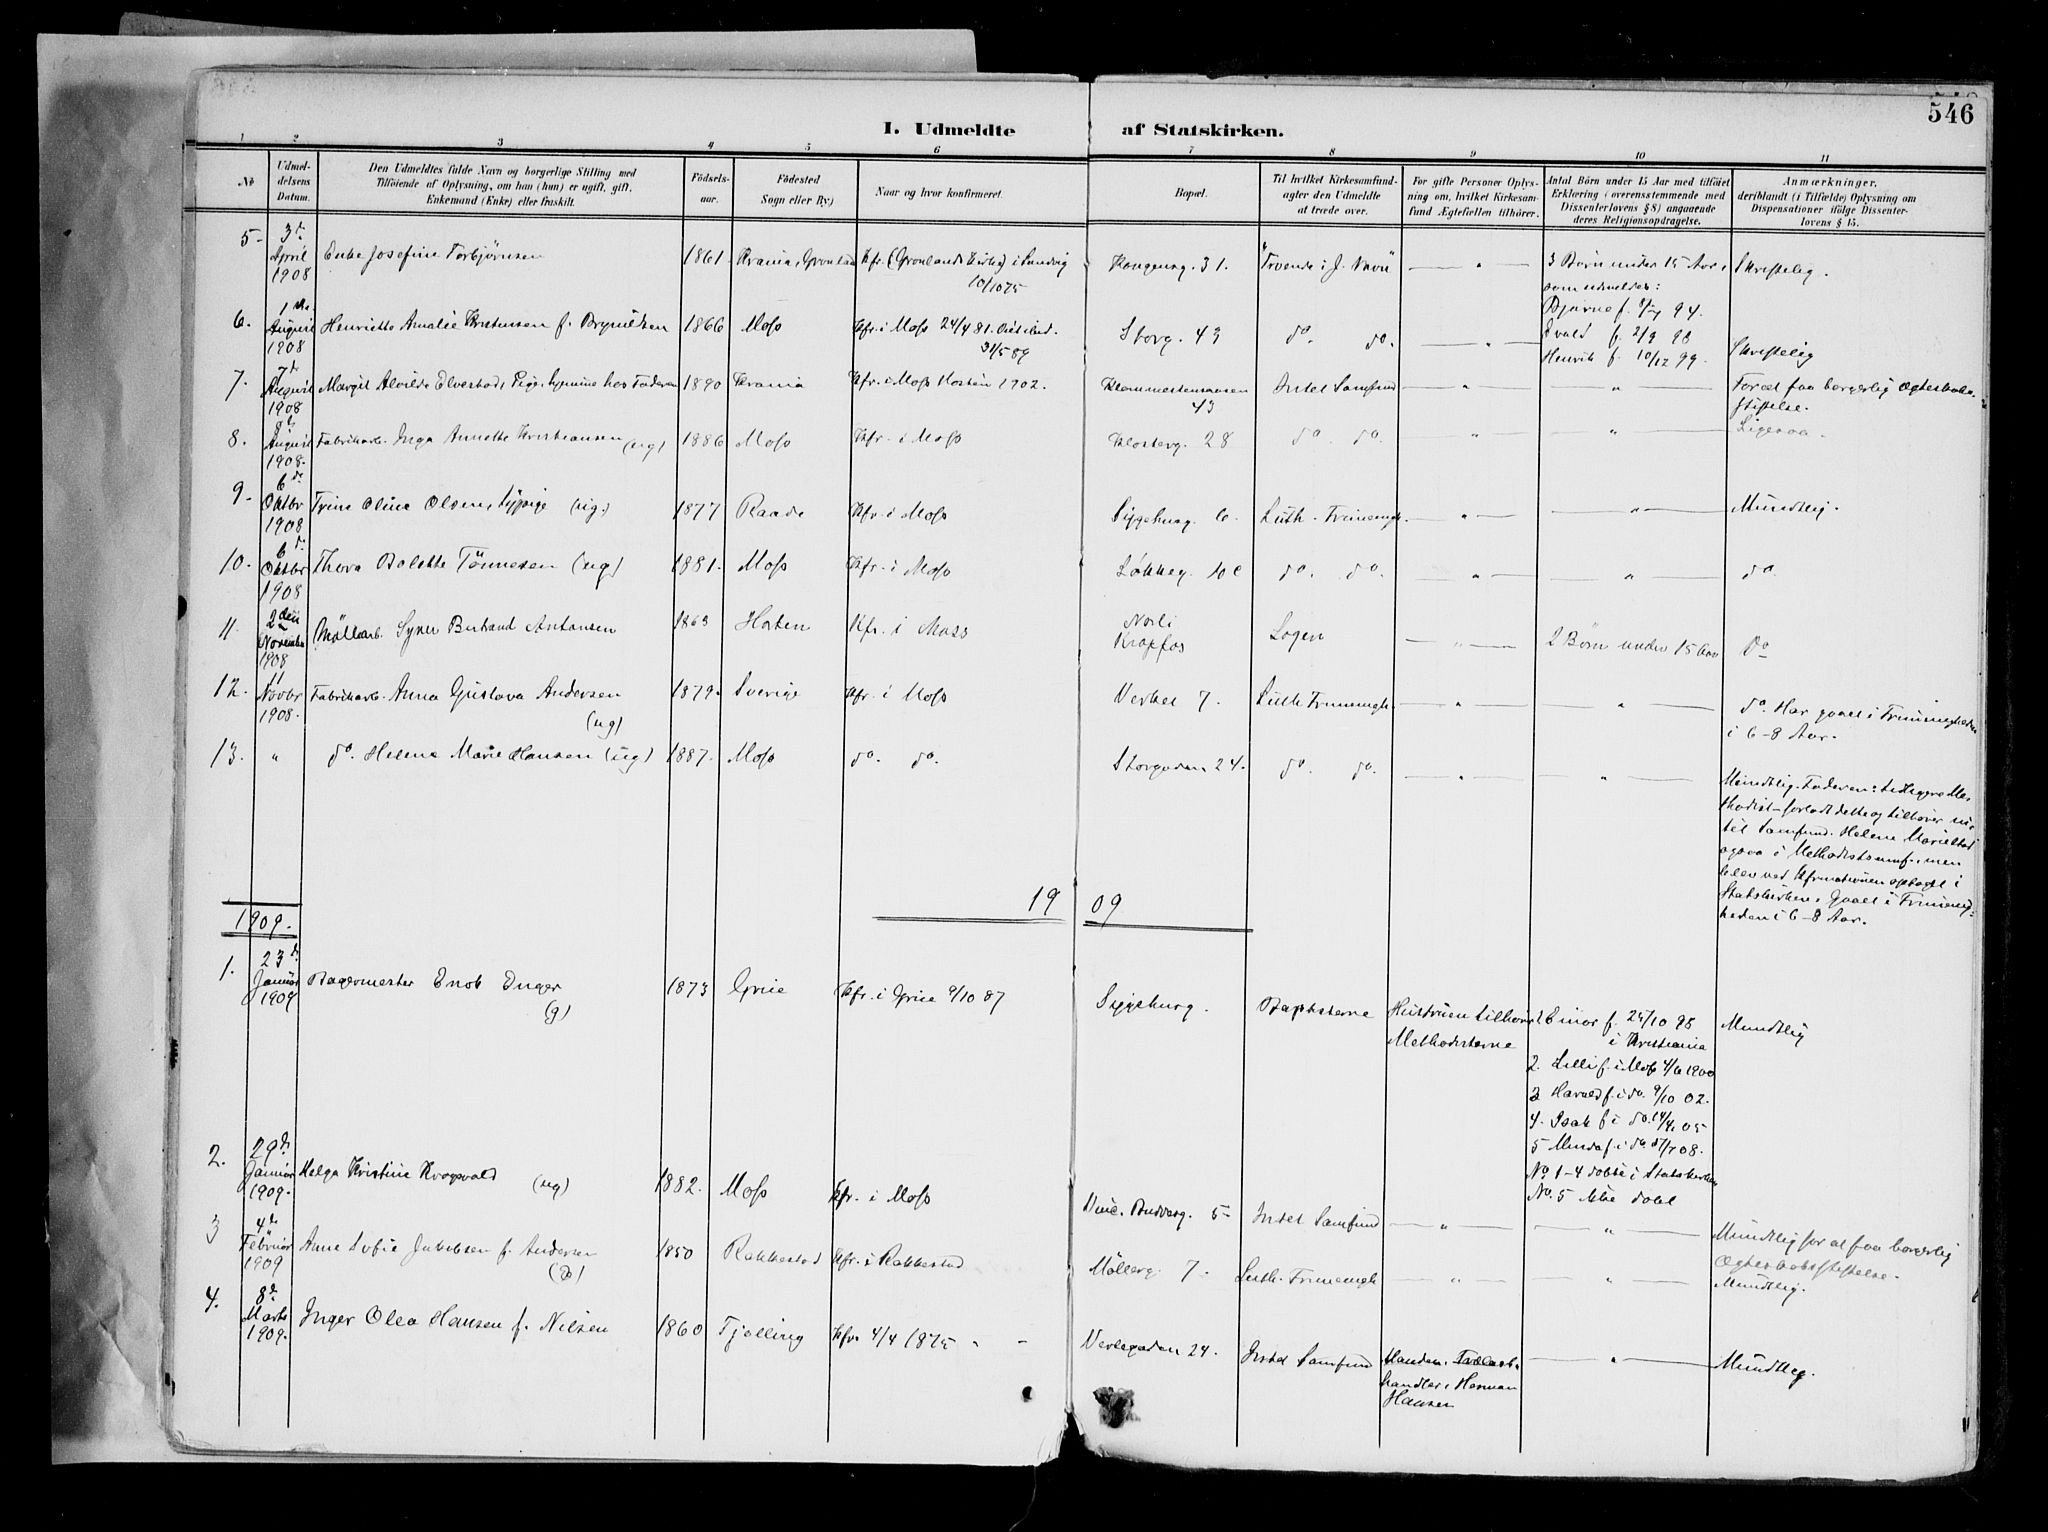 546
I. Udmeldte af Statskirken.
1 2 3 4 5 6 7 8 9 10 11
No
Udmel-
delsens
Datum.
Den Udmeldtes fulde Navn og borgerlige Stilling med
Tilføiende af Oplysning, om han (hun) er ugift, gift,
Enkemand (Enke) eller fraskilt.
Fødsels-
aar.
Fødested
Sogn eller By)
Naar og hvor konfirmeret.
Bopæl.
Til hvilket Kirkesamfund
agter den Udmeldte
at træde over.
For gifte Personer Oplys-
ning om, hvilket Kirkesam-
fund Ægtefællen tilhører.
Antal Børn under 15 Aar med tilføiet
Erklæring (overensstemmende med
Dissenterlovens § 8) angaaende
deres Religionsopdragelse.
Anmærkninger,
deriblandt (i Tilfælde) Oplysning om
Dispensationer ifølge Dissenter-
lovens § 15.
5 3d April 1908 Enke Josefine Torbjörnsen 1861 Krania, Grönland Kfr. (Grönlands Kirke) i Sandvig 10/10 75 Kongensg. 31. "Troende i J. Navn" — " — 3 Börn under 15 Aar, Skriftelig.
som udmeldes:
6. 1ste August 1908 Henriette Amalie Kristensen f. Brynildsen 1866 Moss Kfr. i Moss 24/4 81. 31/5 89 Storg. 43 do. do. — " — Bjarne f. 94.
f. 2/9 98
Henrik f. 10/12 99. Skriftelig
7. 7d August 1908 Margit Alvilde Elvestad, Pige, hos Faderen 1890 Krania Kfr. i Moss Hösten 1902. 43 Intet Samfund — " — — " — For at faa borgerlig Ægteskabs-
stiftelse.
8. 8d August 1908. Fabrikarb. Inga Annette Kristiansen (ug) 1886 Moss Kfr. i Moss Klosterg. 28 do. do. — " — — " — Ligesaa.
9. 6d Oktbr 1908 Trine Oline Olsen, Sypige (ug.) 1877 Raade Kfr. i Moss Siggeburg. 6. Luth. Frimenigh. — " — — " — Mundtlig.
10. 6d Oktbr 1908 Thora Bolette Tönnesen (ug) 1881. Moss Kfr. i Moss Løkkeg. 10 c do. do. — " — — " — do.
11. 2den November 1908 Möllearb. Syver Bertrand Antonsen 1863 Horten Kfr. i Moss Norli
Krapfos Logen — " — 2 Börn under 15 Aar do
12. 11 Novbr 1908. Fabrikarb. Anna Gustava Andersen (ug) 1879. Sverige Kfr. i Moss Verket 7. Luth Frimenigh. — " — — " — do. Har gaaet i Frimenigheden
i 6-8 Aar.
13. " do. Helene Marie Hansen (ug) 1887. Moss do. do. Storgaden 24. do. do. — " — — " — Mundtlig. Faderen tidligere Me-
thodist – forladt dette og tilhører in-
tet Samfund. Helene Marie stod
ogsaa i Methodistsamf., men
blev ved Kfrmationen optaget i
Statskirken. Gaaet i Frimenig-
heden i 6-8 Aar.
1909. 19 09
1. 23d Januar 1909 Bagermester Enok Enger (g) 1873 Grue Kfr. i Grue 9/10 87 Siggeburg. Baptisterne Hustruen tilhører
Methodisterne 1 Einar f. 24/10 98
i Kristiania
2. Lilli f. i Moss 4/6 1900
3 Harald f. i do. 9/10 02.
4. Isak f i do. 14/4 05
5 f. i do. 08.
No 1-4 döbte i Statskirken
No. 5 ikke döbt Mundtlig
2. 29d Januar 1909. Helga Kristine Krogsvold (ug) 1882. Moss Kfr. i Moss 5 Intet Samfund — " — — " — Mundtlig for at faa borgerlig
Ægteskabsstiftelse.
3 4d Februar 1909 Anne Sofie Jakobsen f. Andersen (g) 1850 Rakkestad Kfr. i Rakkestad Möllerg. 7. Luth. Frimenigh — " — — " — Mundtlig.
4. 8d Marts 1909. Inger Olea Hansen f. Nilsen 1860 Tjølling Kfr. 4/4 1875 " - Verlegaden 24. Intet Samfund Manden,
handler, Herman
Hansen — " — Mundtlig.